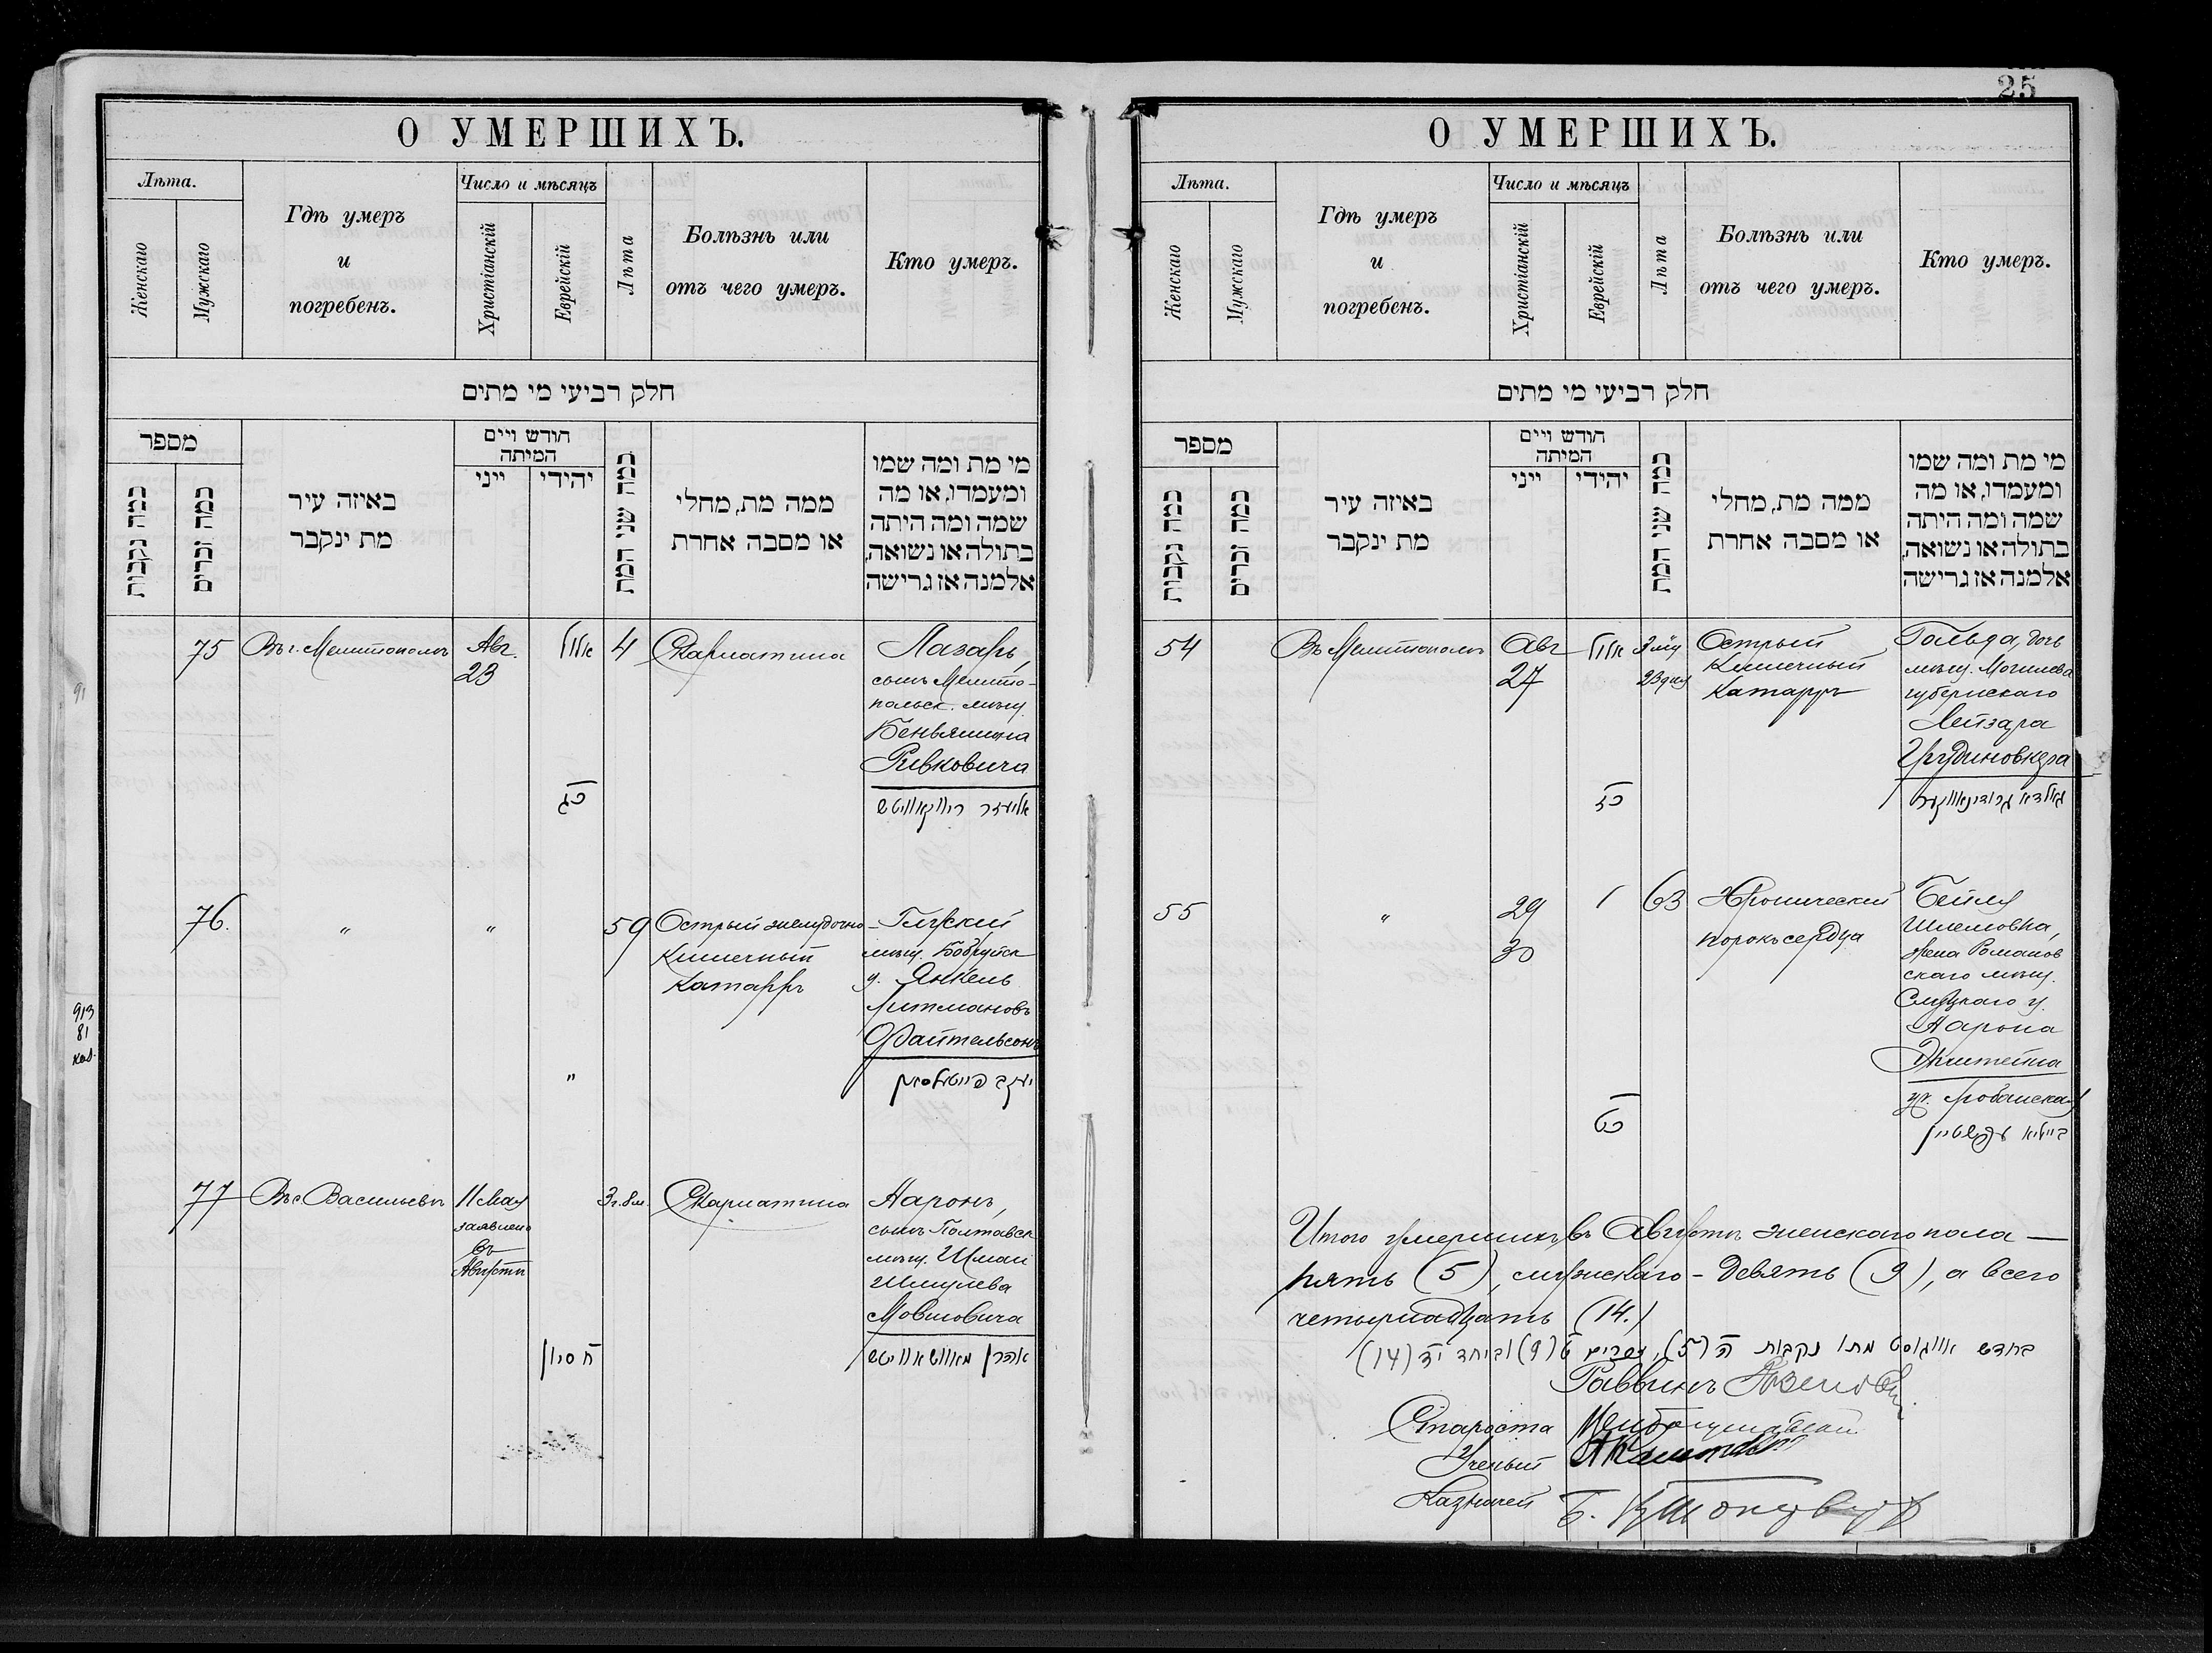 25
О УМЕРШИХЪ.
Лѣта.
Женскаго
Мужскаго
Гдѣ умеръ
и
погребенъ.
Число и мѣсяцъ
Христіанскій
Еврейскій
Лѣта
Болѣзнь или
отъ чего умеръ.
Кто умеръ.
חלק רביעי מי מתים
מספר
כמה נקבות
כמה זכרים
באיזה עיר
מת ינקבר
חודש ויים
המיתה
ייני
יהידי
כמה שני המת
ממה מת, מחלי
או מסבה אחרת
מי מת ומה שמו
ומעמדו, או מה
שמה ומה היתה
בתולה או נשואה,
אלמנה אז גרישה
75
Въ г. Мелитополѣ
Авг.
23
אלול
כג
4
Скарлатина
Лазарь,
сынъ Мелито-
польск. мѣщ.
Беньямина
Ривковича
אליעזר ריווקאוויטש
76.
"
"
"
59
Острый желудочно-
кишечный
катарръ
Глусский
мѣщ. Бобруйск
у. Янкель
Литмановъ
Файтельсонъ
יעקב פייטעלסאן
913
81
77
Въ с. Васильевкѣ
11 Мая
заявлено
въ
Августѣ
ח סיון
3 г. 8 м.
Скарлатина
Аронъ,
сынъ Полтавск
мѣщ. Шмай
Шмулева
Мовшовича
אהרן מאוושאוויטש
О УМЕРШИХЪ.
Лѣта.
Женскаго
Мужскаго
Гдѣ умеръ
и
погребенъ.
Число и мѣсяцъ
Христіанскій
Еврейскій
Лѣта
Болѣзнь или
отъ чего умеръ.
Кто умеръ.
חלק רביעי מי מתים
מספר
כמה נקבות
כמה זכרים
באיזה עיר
מת ינקבר
חודש ויים
המיתה
ייני
יהידי
כמה שני המת
ממה מת, מחלי
או מסבה אחרת
מי מת ומה שמו
ומעמדו, או מה
שמה ומה היתה
בתולה או נשואה,
אלמנה אז גרישה
54
Въ Мелитополѣ
Авг
27
אלול
כז
23 дня
Острый
Кишечный
Катарръ
Гольда, дочь
мѣщ. Могилева
губернскаго
Лейзара
Грудиновкера
גאלדא גרודינאווקער
55
"
29
30
כט
63
Хроническій
порокъ сердца
Бейля
Шлемовна,
жена Романов
скаго мѣщ.
Слуцкаго у.
Аарона
Экштейна
ביילא עקשטיין
Итого умершихъ въ Августѣ женскаго пола —
пять (5), мужскаго - девять (9), а всего
четырнадцать (14.)
בחדש אווגוסט מתו נקבות ה (5), וזכרים ט (9) וביחד יד (14)
Раввинъ
Староста
Ученый
Казначей